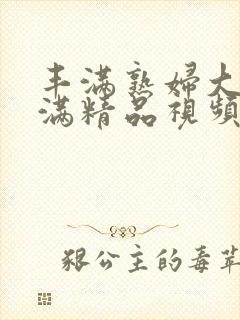 丰满熟婦大
满精品視頻
狠公主的毒草